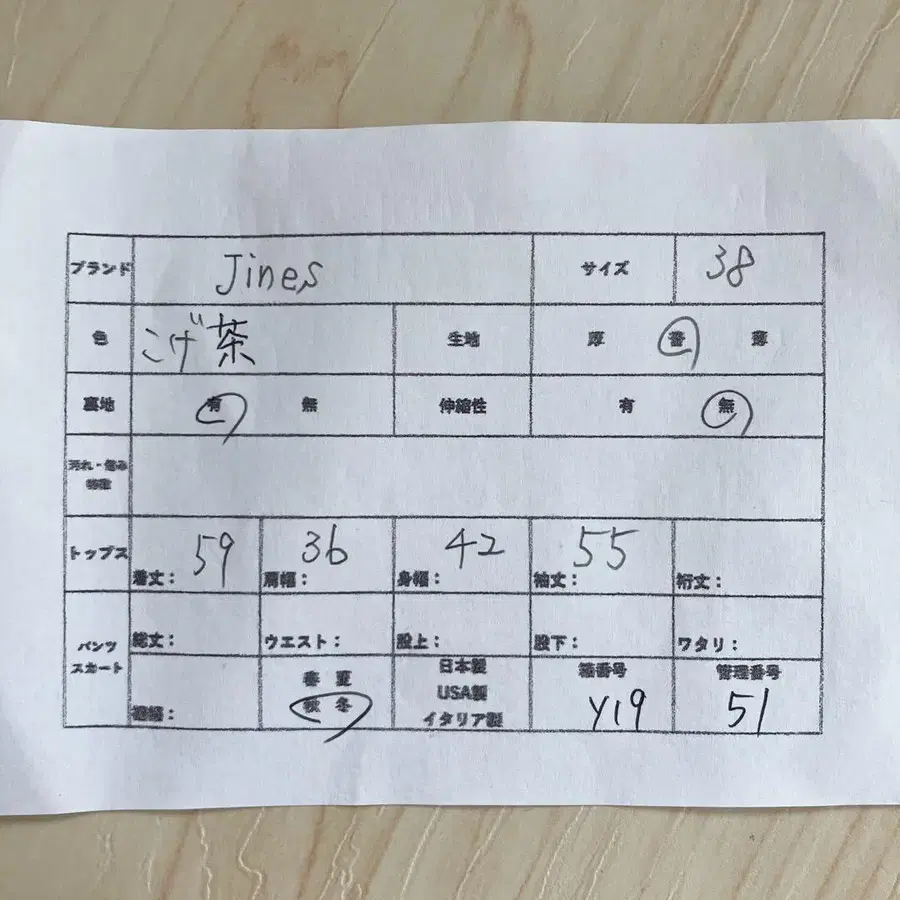 ブランド Jines サイズ 38
色 こげ茶 生地 厚 普 薄
裏地 有 無 伸縮性 有 無
汚れ・傷み
トップス 着丈: 59 肩幅: 36 身幅: 42 袖丈: 55 裄丈:
パンツ 総丈: ウエスト: 股上: 股下: ワタリ:
スカート 裾幅: 春 夏 日本製 箱番号 管理番号
秋 冬 USA製 Y19 51
イタリア製